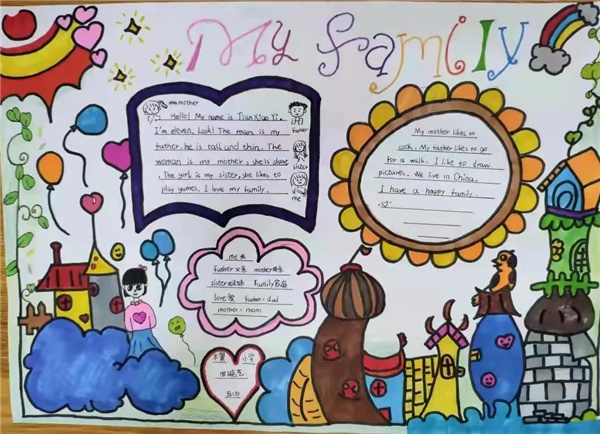 My family
mother
Hello! My name is Tian Xiao Yi.
I'm eleven. Look! The man is my
father, he is tall and thin. The
woman is my mother, she is short
. The girl is my sister, she likes to
play games. I love my family.
father
sister
me
My mother likes to
cook. My father likes to go
for a walk. I like to draw
pictures. We live in China.
I have a happy family.
me 我
father 父亲 mother 母亲
sister 妹妹 family 家庭
love 爱 father: dad
mother: mom
小学